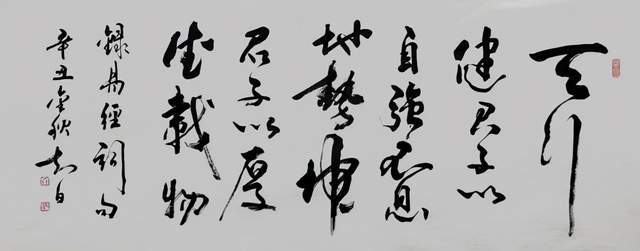 天行
健君子以
自強不息
地勢坤
君子以厚
德載物
錄易經詞句
辛丑金秋